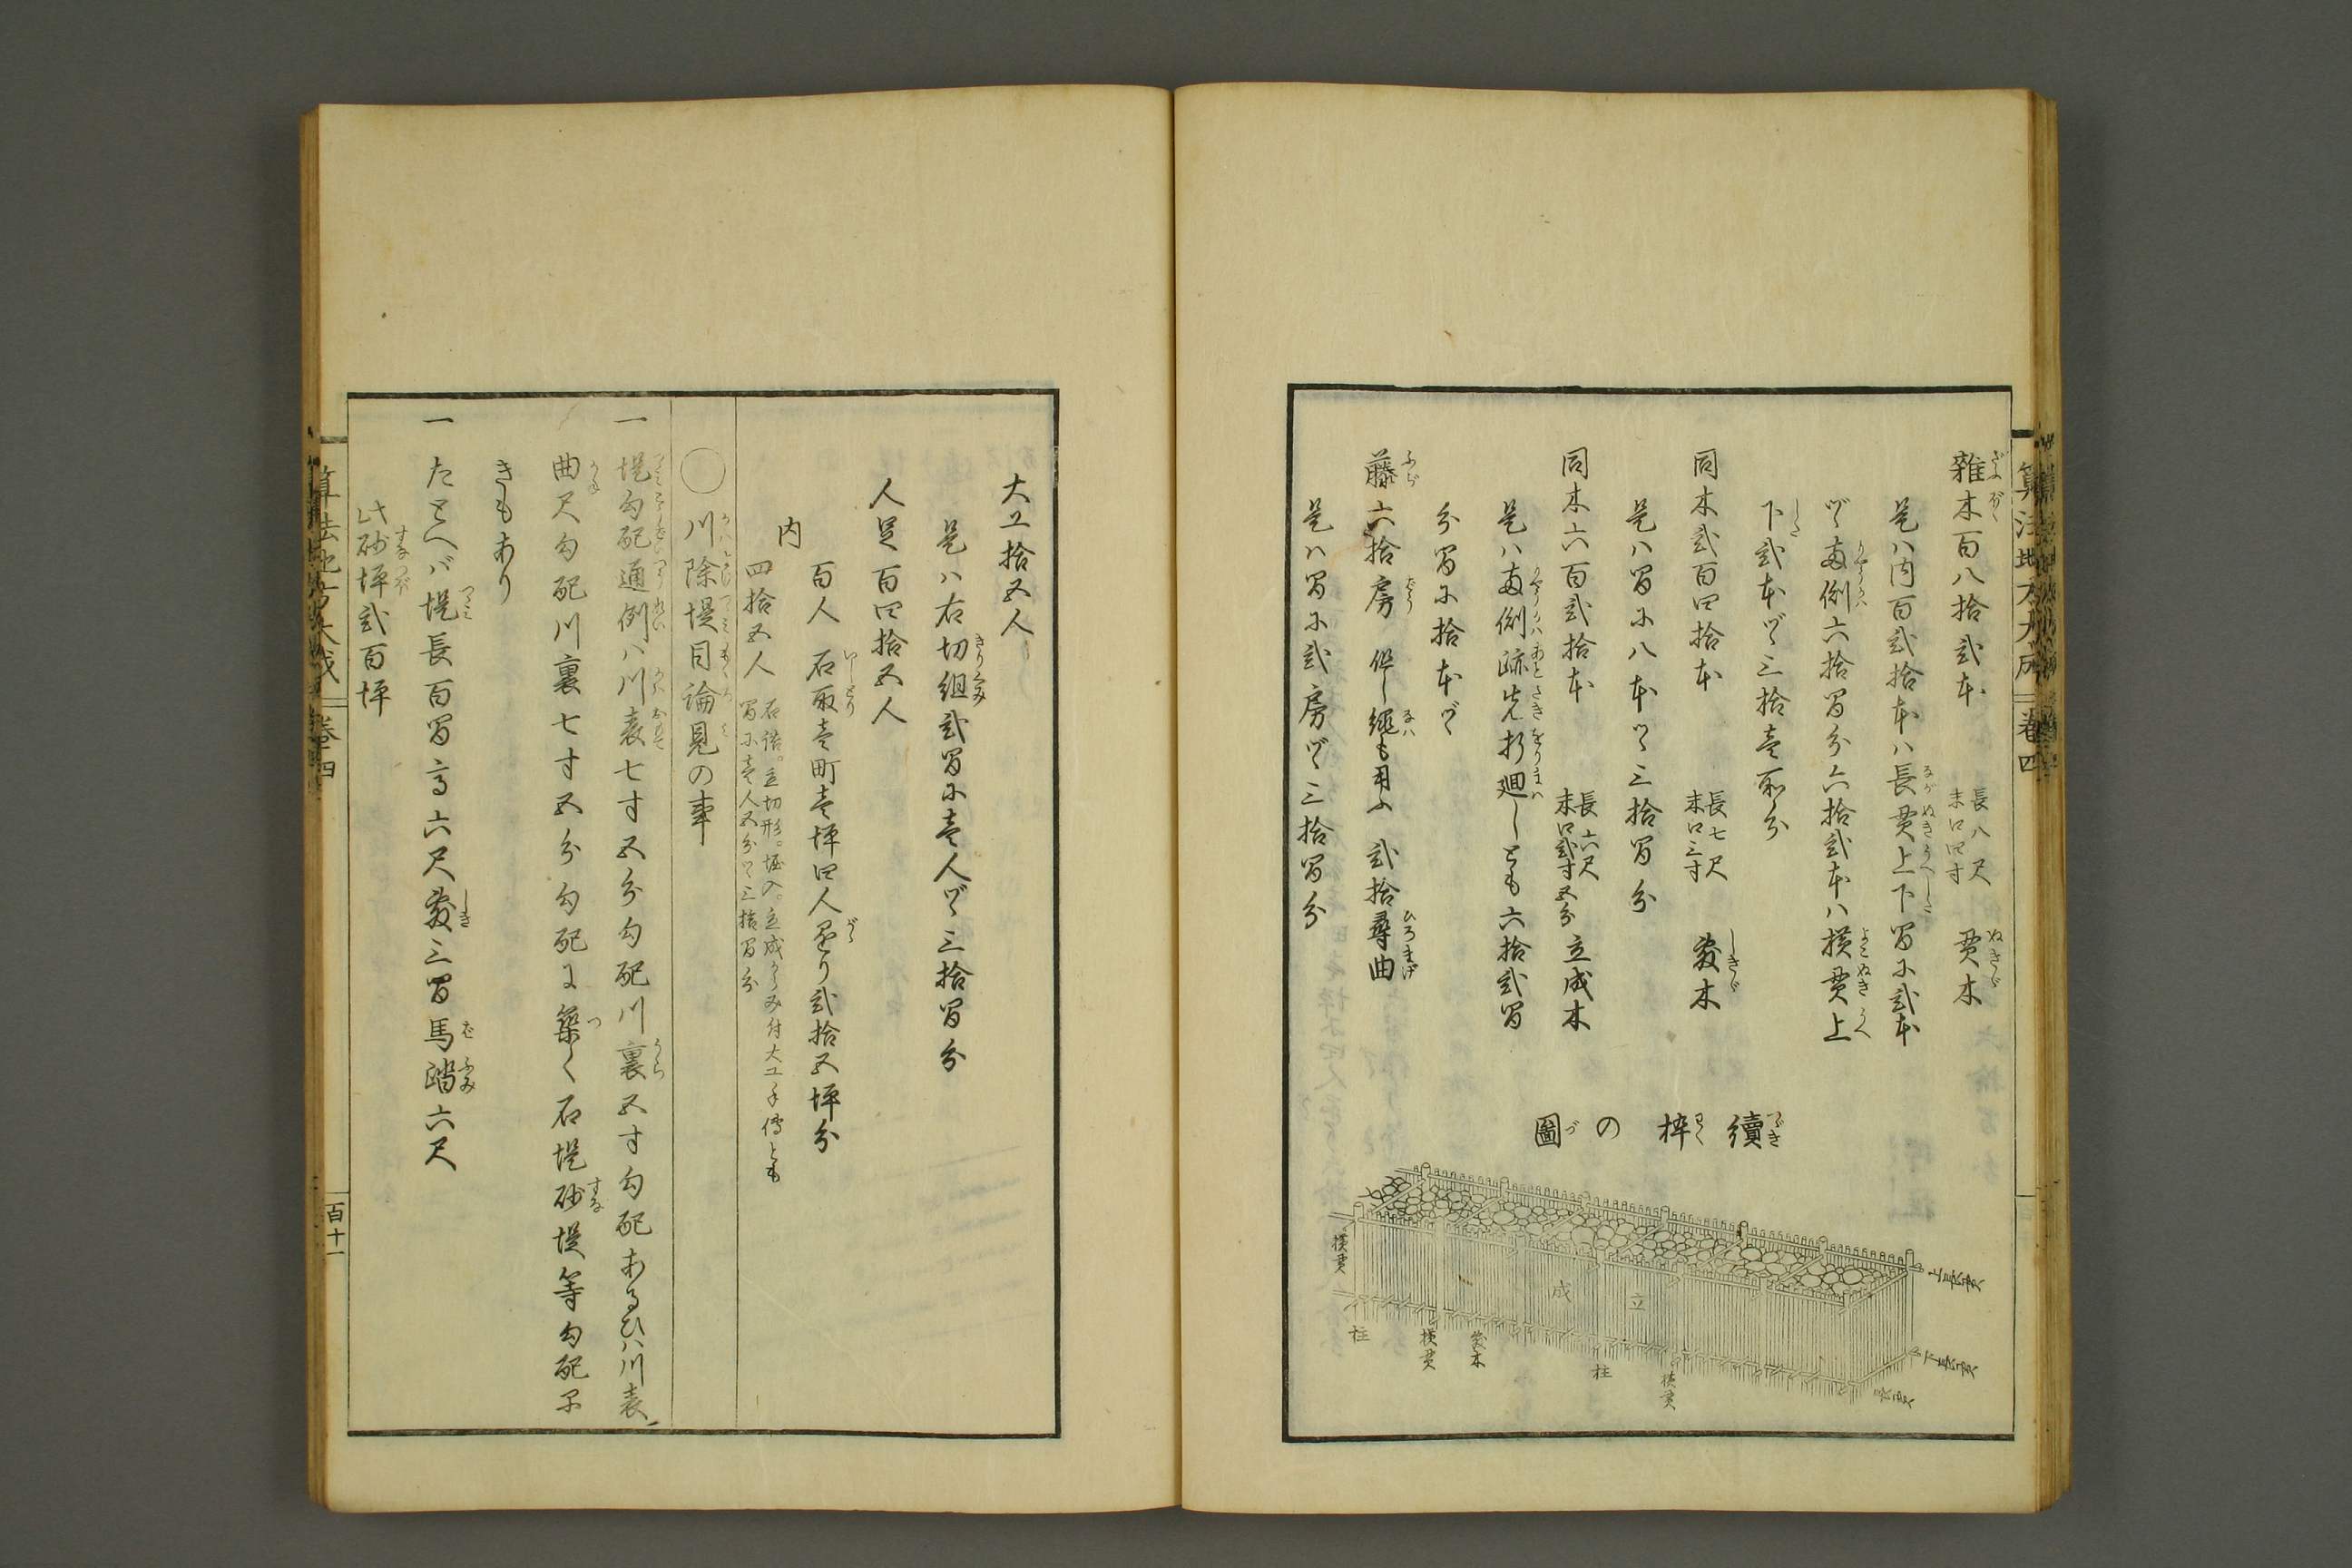 算法地方大成 巻四
雑木百八拾弐本 長八尺 末口四寸 貫木
是ハ内百弐拾本ハ長貫上下間ニ弐本
ヅヽ両側六拾間分六拾弐本ハ横貫上
下弐本ヅヽ三拾壱所分
同木弐百四拾本 長七尺 末口三寸 敷木
是ハ間ニ八本ヅヽ三拾間分
同木六百弐拾本 長六尺 末口弐寸五分 立成木
是ハ両側跡先折廻しとも六拾弐間
分間ニ拾本ヅヽ
藤六拾房 但し縄も用ふ 弐拾尋曲
是ハ間ニ弐房ヅヽ三拾間分
續枠の圖
上長貫
下長貫
横貫
柱
横貫
敷木
成
立
柱
横貫
大工拾五人
是ハ右切組弐間ニ壱人ヅヽ三拾間分
人足百四拾五人
内
百人 石取壱町壱坪四人づゝり弐拾五坪分
四拾五人 石詰。立切形。堀入。立成からみ付大工手傳とも
間ニ壱人五分ヅヽ三拾間分
〇川除堤目論見の事
一 堤勾配通例ハ川表七寸五分勾配川裏五寸勾配あるひハ川表
曲尺勾配川裏七寸五分勾配に築く石堤砂堤等勾配
きもあり
一 たとへバ堤長百間高六尺敷三間馬踏六尺
此砂坪弐百坪
算法地方大成 巻四 百十一